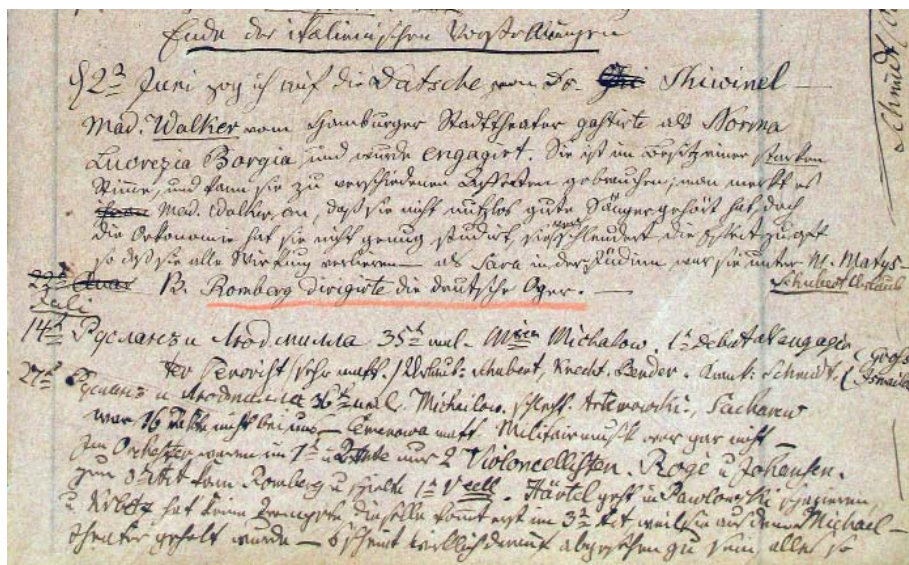 Ende der italienischen Vorstellungen
2ª Juni zog ich auf die Datsche von Dr. Thiwinel —
Mad. Walker vom Hamburger Stadttheater gastirte als Norma
Lucrezia Borgia und wurde engagirt. Sie ist im Besitz einer starken
Stimme, und kann sie zu verschiedenen gebrauchen; man merkt es
Mad. Walker an, daß sie nicht nutzlos gute Sänger gehört hat, doch
die Oekonomie hat sie nicht genug studirt, sie schleudert die Effekte zu oft
so daß sie alle Wirkung verlieren — als Sara in der Jüdinn war sie unter M. Matys-
B. Romberg dirigirte die deutsche Oper. — Schubert Urlaub
Juli
14ª Русланъ и Людмилла 35ᵗ mal. Michalow. 1ª Debut als engagir-
ter Tenorist sehr matt. Urlaub: Schubert, Knecht. Bender. Krank: Schmidt.
27ª Русланъ и Людмилла 36ᵗ mal. Michailow. schlecht. Artemowski.
war 16 Takte nicht bei uns — matt. Militairmusik war gar nicht —
Im Orchester waren im 1ª u 2ª Akte nur 2 Violoncellisten. Rogé u Johansen.
zum 3ª Akt kam Romberg u spielte 1ª Vcell. Härtel geht in Pawlowski spazieren,
u hat keine Trompete, dieselbe kommt erst im 3ª Akt weil sie aus dem Michael-
theater geholt wurde — es scheint abgesehen zu sein, alles so
Schmidt